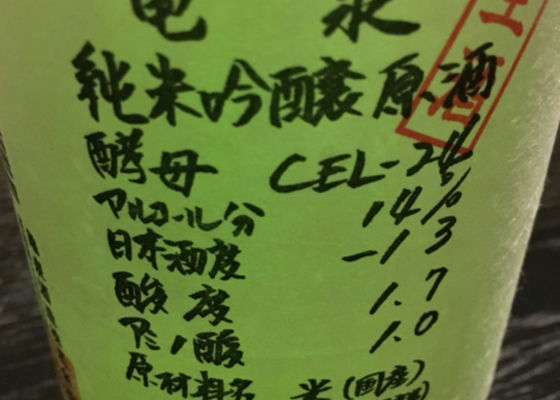 亀泉
純米吟醸原酒
酵母 CEL-24
アルコール分 14%
日本酒度 -13
酸度 1.7
アミノ酸 1.0
原材料名 米(国産)